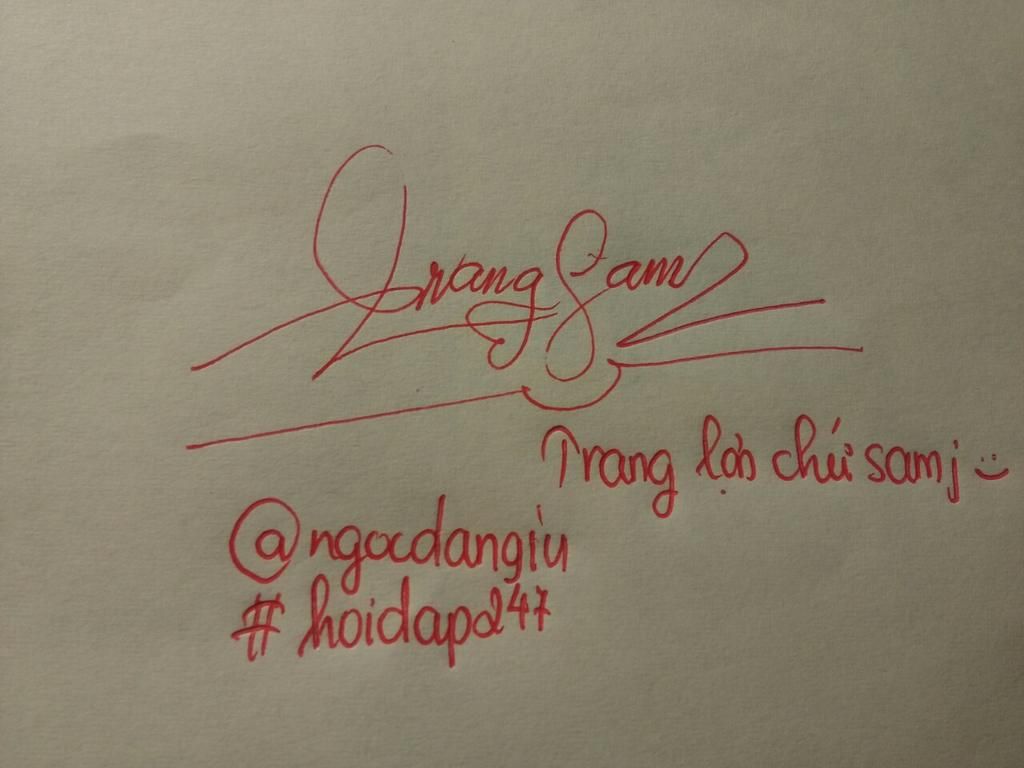 Trang Sam
Trang lợn chứ samj :)
@ngocdangiu
#hoidap247